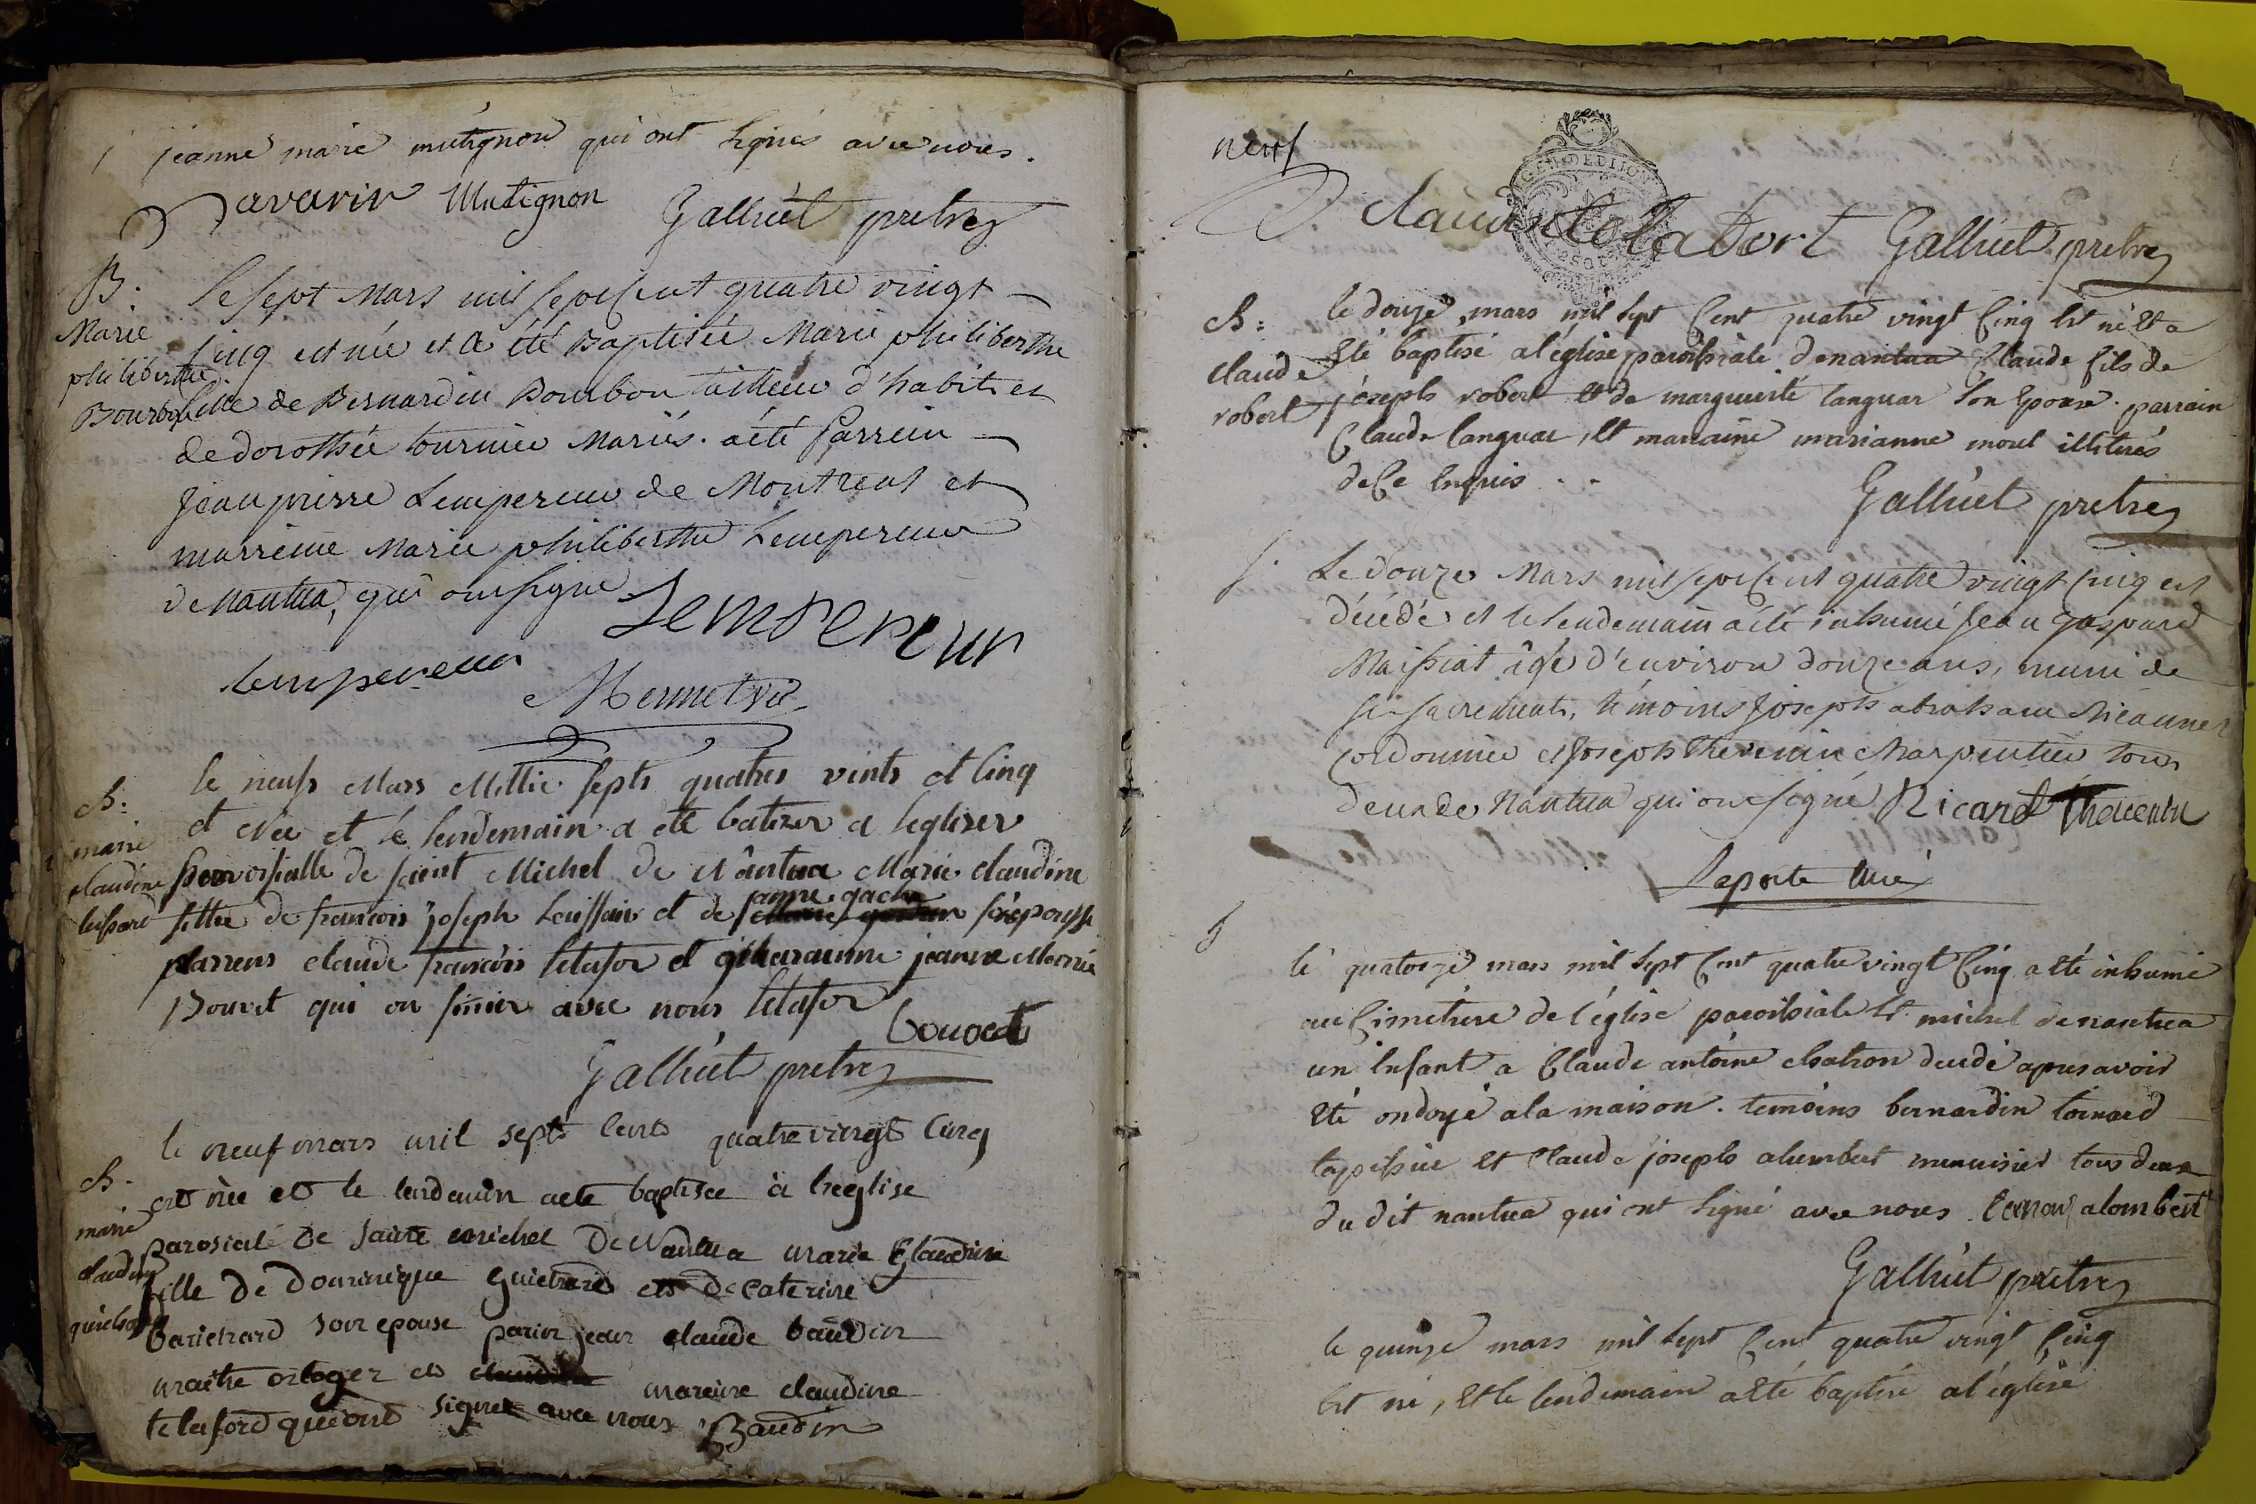 jeanne marie mutignon qui ont signés avec nous.
Savarin Mutignon Galliet pretre
B:
Marie
philiberthe
Bourbon
Le sept Mars mil sept cent quatre vingt
cinq est née et a été Baptisée Marie philiberthe
fille de Bernardin Bourbon tailleur d'habit et
de dorothée tournier Mariés. a été parrein
Jean pierre Lempereur de Montreal et
marreine Marie philiberthe Lempereur
de Nantua, qui ont signé
Lempereur
lempereur
Mermet vic.
ch:
marie
claudine
le neufs Mars Millie septs quatres vints et cinq
et née et le lendemain a ete batizer a leglizer
de saint Michel de Nantua Marie claudine
fillie de francois joseph et de anne gache sé epousse
parrens claude francois letafor et jeanne Marie
Bouvet qui on sinier avec nous letafor
bouvet
Galliet pretre
ch.
marie
claudine
le neuf mars mil septs cents quatre vingts cinq
est née et le lendemin a ete baptisee à l'eeglise
parosiale de saint michel De Nantua marie Claudine
fille de dominique et de caterine
son epouse parin jean claude baudin
maitre orloger et mareine claudine
telaford qui ont signer avec nous Baudin
neuf
claudine labort Galliet pretre
ch:
claude
robert
le douze mars mil sept cent quatre vingt cinq est né et a
eté baptisé a l'église paroissiale de nantua Claude fils de
joseph robert et de marguerite languar son epouse. parrain
Claude languar, et marraine marianne morel illiterés
de ce enquis . .
Galliet pretre
S.
Le douze Mars mil sept cent quatre vingt cinq est
décédé et le lendemain a été inhumé Jean Gaspard
Maissiat âgé d'environ douze ans, muni de
ses sacrements, témoins joseph abraham
cordonnier et joseph thevenin charpentier tous
deux de Nantua qui ont signé Ricanet thevenin
Laporte curé
S
le quatorze mars mil sept cent quatre vingt cinq a eté inhumé
au cimetiere de l'église paroissiale st michel de nantua
un enfant a Claude antoine chatron decedé apres avoir
eté ondoyé a la maison. temoins bernardin
tapissier et Claude joseph alumbert menuisier tous deux
du dit nantua qui ont signé avec nous. alombert
Galliet pretre
le quinze mars mil sept cent quatre vingt cinq
est né, et le lendemain a eté baptisé a l'église